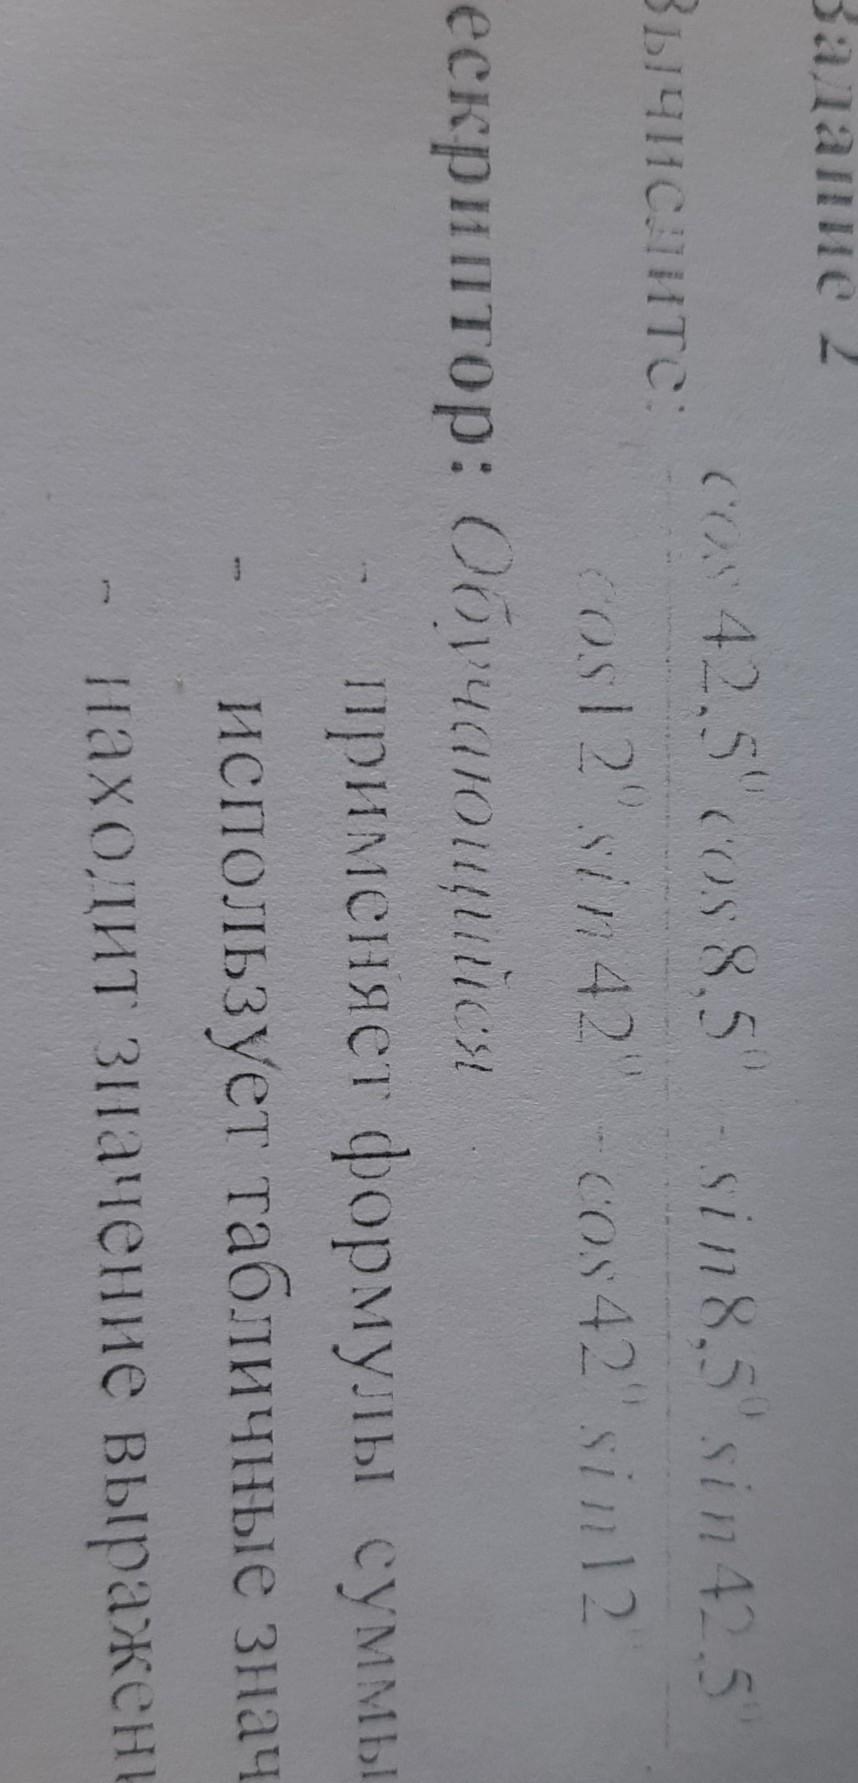 Задание 2
Вычислите:
cos 42,5⁰ cos 8,5⁰ - sin 8,5⁰ sin 42,5⁰
cos 12⁰ sin 42⁰ - cos 42⁰ sin 12⁰
ескриптор: Обучающийся
- применяет формулы суммы
- использует табличные знач
- находит значение выражен